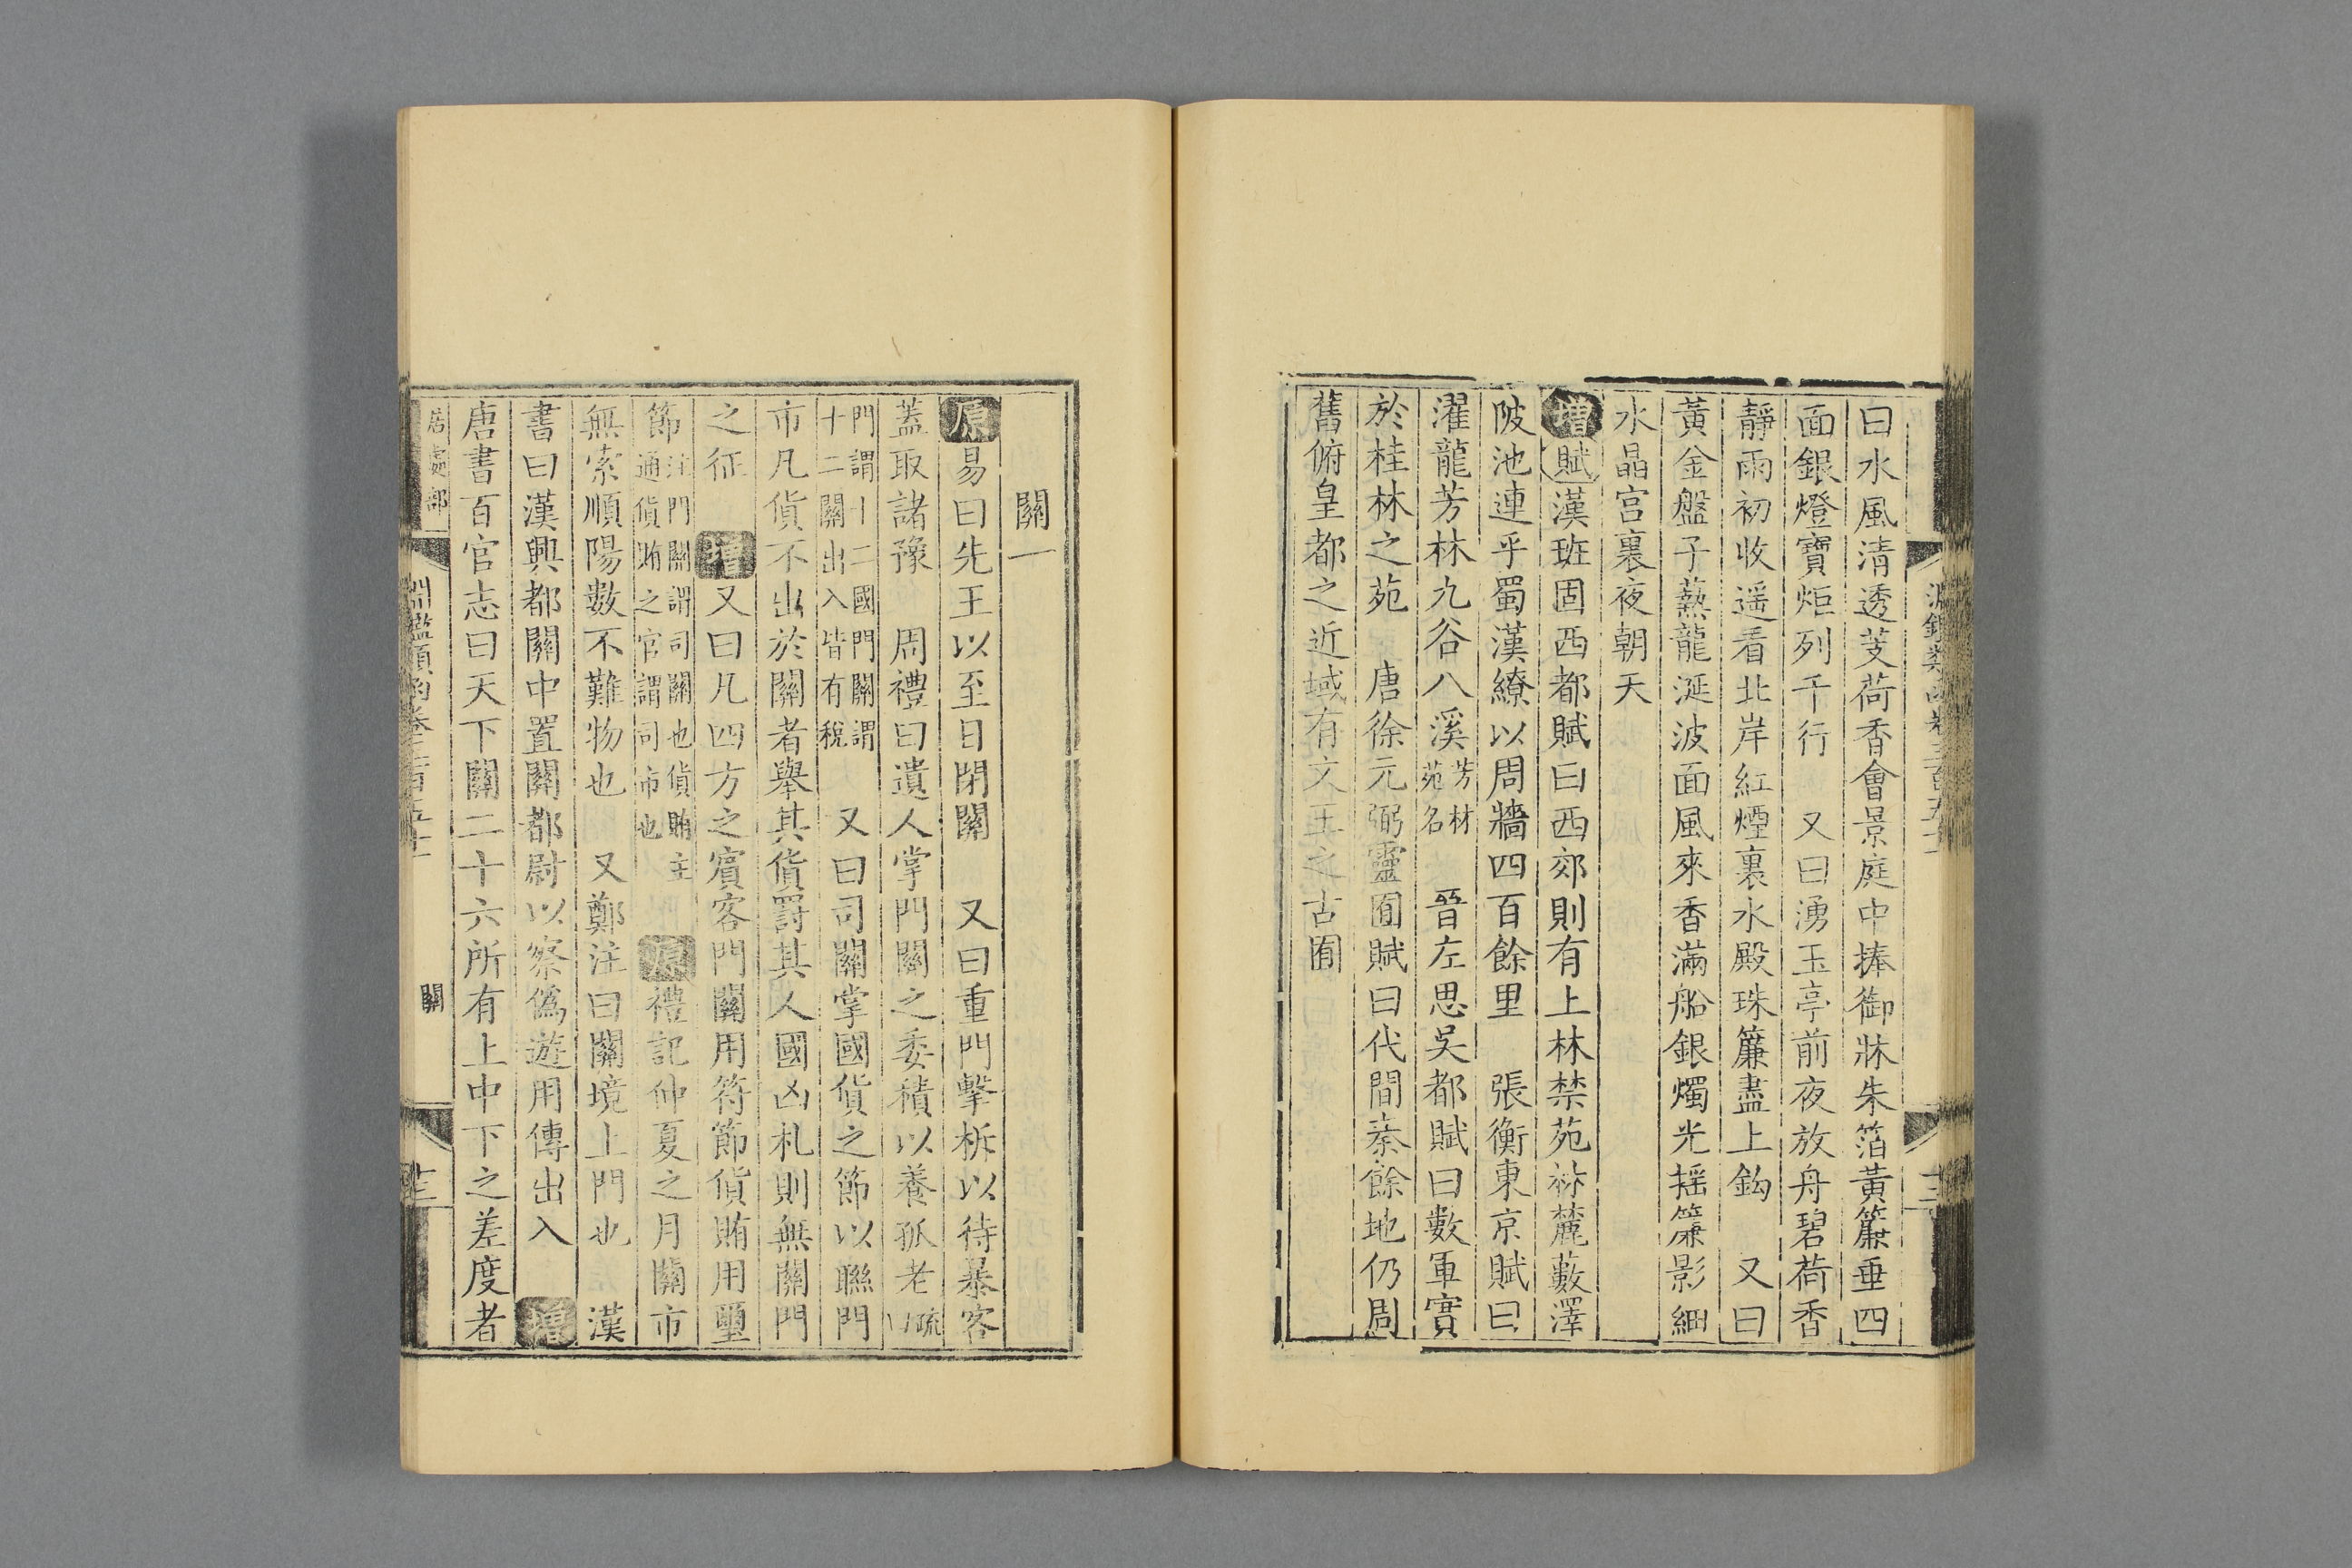 曰水風清透芰荷香會景庭中捧御牀朱箔黃簾垂四
面銀燈寶炬列千行　又曰湧玉亭前夜放舟碧荷香
靜雨初收遥看北岸紅煙裏水殿珠簾盡上鈎　又曰
黃金盤子爇龍涎波面風來香滿船銀燭光揺簾影細
水晶宫裏夜朝天
增賦漢班固西都賦曰西郊則有上林禁苑林麓藪澤
陂池連乎蜀漢繚以周牆四百餘里　張衡東京賦曰
濯龍芳林九谷八溪芳林苑名　晉左思吳都賦曰數軍實
於桂林之苑　唐徐元弼靈囿賦曰代間秦餘地仍周
舊俯皇都之近域有文王之古囿
關一
原易曰先王以至日閉關　又曰重門擊柝以待暴客
蓋取諸豫　周禮曰遺人掌門關之委積以養孤老疏以
門謂十二國門關謂十二關出入皆有稅　又曰司關掌國貨之節以聯門
市凡貨不出於關者舉其貨罸其人國凶札則無關門
之征　增又曰凡四方之賓客門關用符節貨賄用璽
節注門關謂司關也貨賄主通貨賄之官謂司市也　原禮記仲夏之月關市
無索順陽數不難物也　又鄭注曰關境上門也　漢
書曰漢興都關中置關都尉以察僞遊用傳出入　增
唐書百官志曰天下關二十六所有上中下之差度者
居處部
淵鑑類函卷三百五十一
關